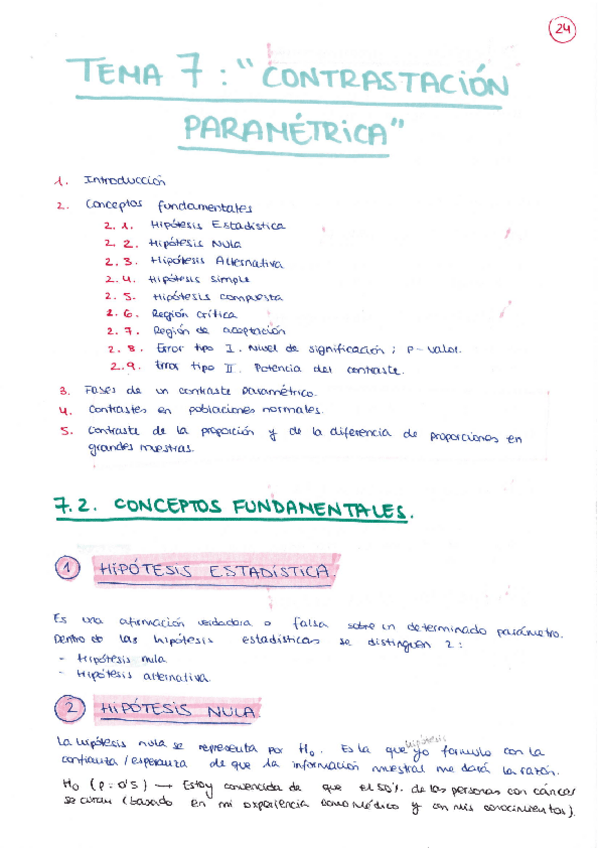 24
TEMA 7: "CONTRASTACIÓN
PARAMÉTRICA"
1. Introducción
2. Conceptos fundamentales
2.1. Hipótesis Estadística
2.2. Hipótesis Nula
2.3. Hipótesis Alternativa
2.4. Hipótesis simple
2.5. Hipótesis compuesta
2.6. Región crítica
2.7. Región de aceptación
2.8. Error tipo I. Nivel de significación; p-valor.
2.9. Error tipo II. Potencia del contraste.
3. Fases de un contraste paramétrico.
4. Contrastes en poblaciones normales.
5. Contraste de la proporción y de la diferencia de proporciones en
grandes muestras.
7.2. CONCEPTOS FUNDAMENTALES.
1 HIPÓTESIS ESTADÍSTICA
Es una afirmación verdadera o falsa sobre un determinado parámetro.
Dentro de las hipótesis estadísticas se distinguen 2:
- Hipótesis nula
- Hipótesis alternativa.
2 HIPÓTESIS NULA
hipótesis
La hipótesis nula se representa por H₀. Es la que yo formulo con la
confianza/esperanza de que la información muestral me dará la razón.
H₀ (p=0'5) → Estoy convencida de que el 50% de las personas con cáncer
se curan (basado en mi experiencia como médico y en mis conocimientos).